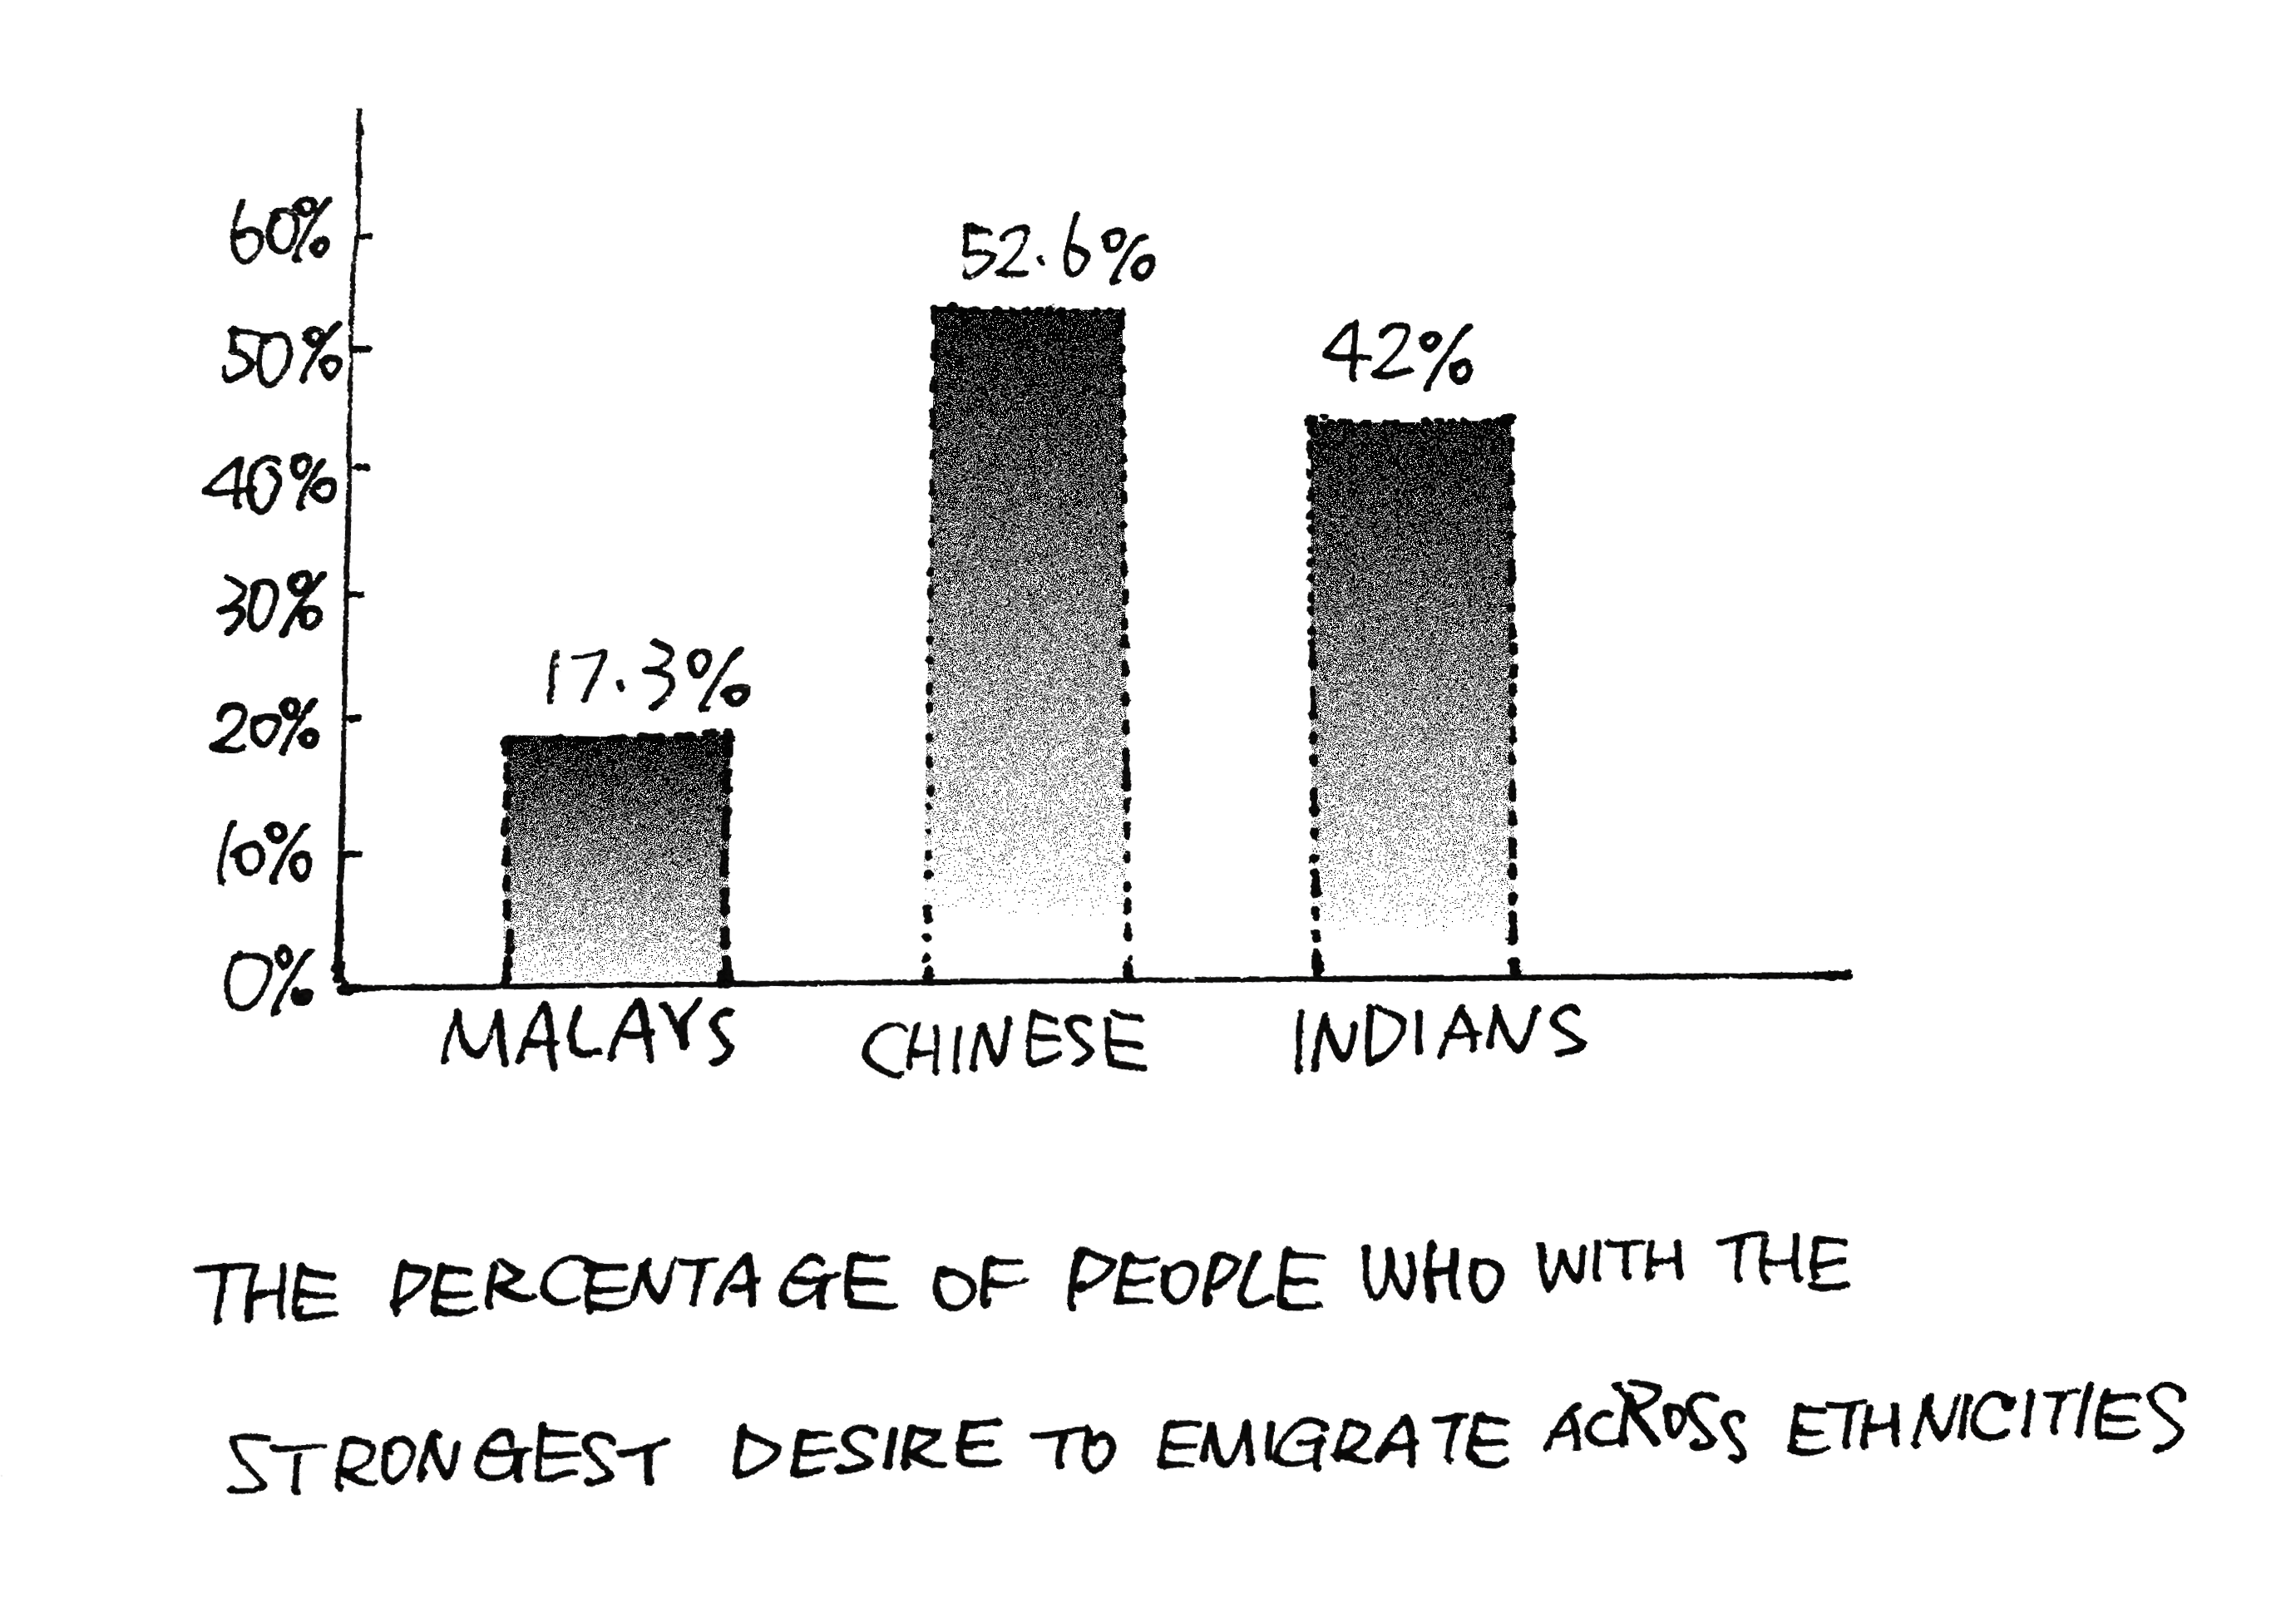 60%
52.6%
50%
42%
40%
30%
17.3%
20%
10%
0%
MALAYS CHINESE INDIANS
THE PERCENTAGE OF PEOPLE WHO WITH THE
STRONGEST DESIRE TO EMIGRATE ACROSS ETHNICITIES